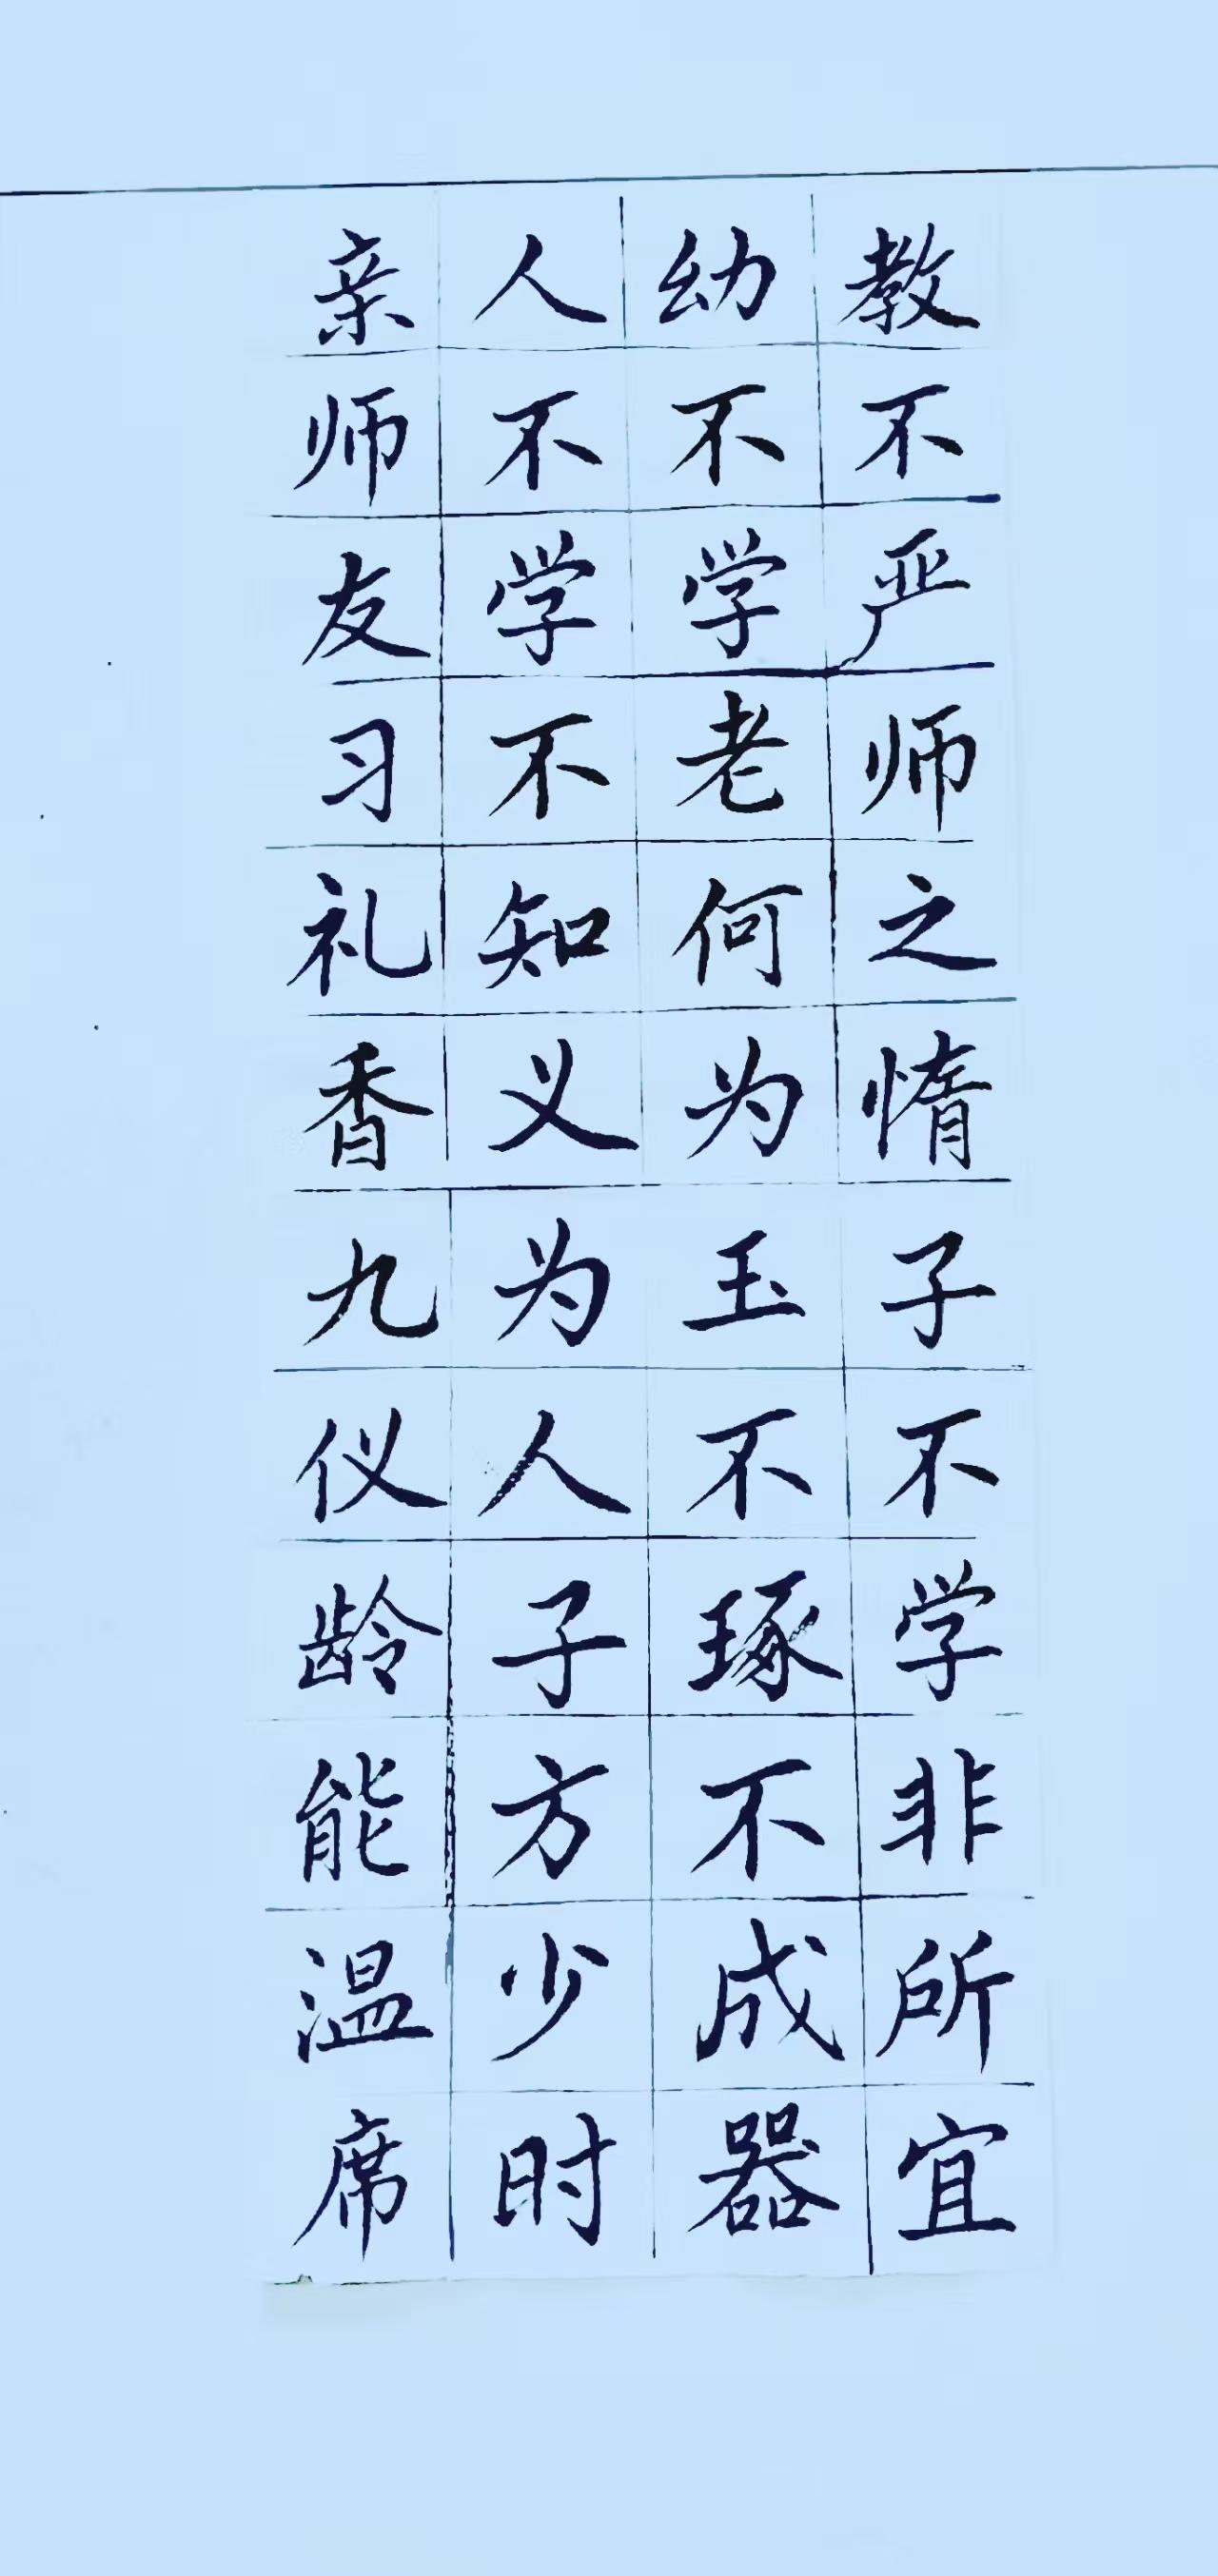 教不严师之惰子不学非所宜
幼不学老何为玉不琢不成器
人不学不知义为人子方少时
亲师友习礼香九仪龄能温席